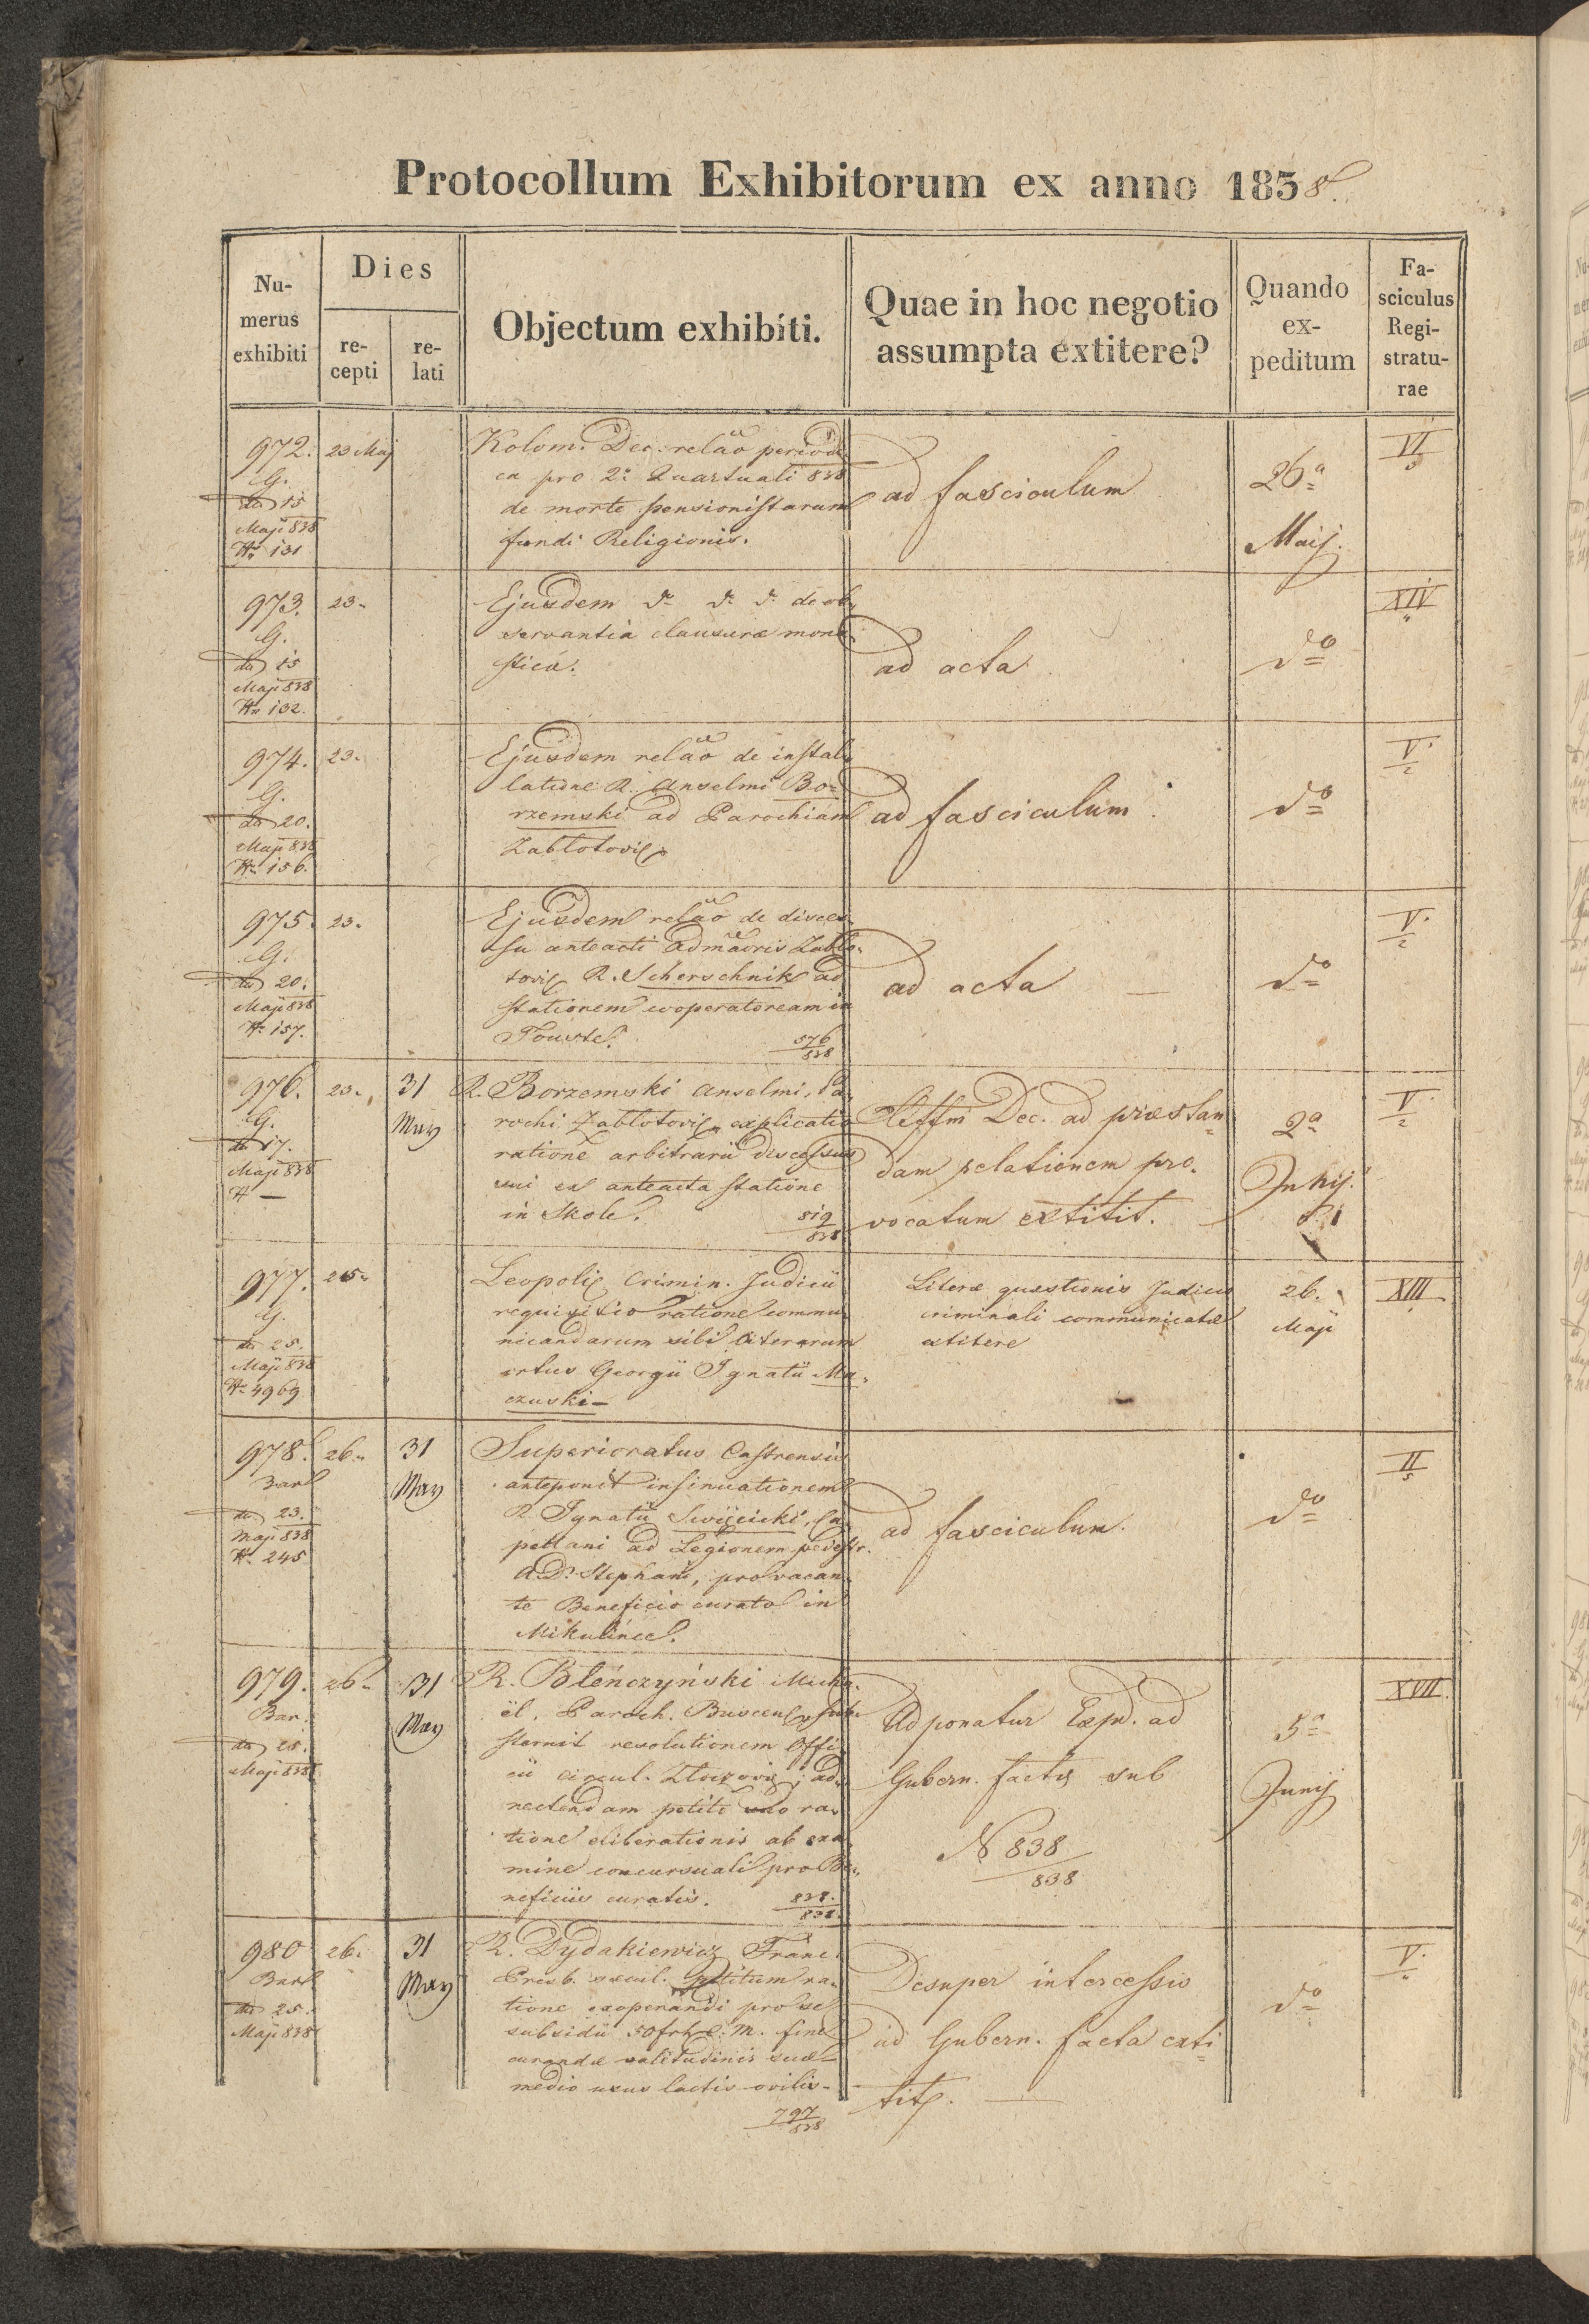 Protocollum Exhibitorum ex anno 1838.
Nu-
merus
exhibiti
Dies
re-
cepti
re-
lati
Objectum exhibiti.
Quae in hoc negotio
assumpta extitere?
Quando
ex-
peditum
Fa-
sciculus
Regi-
stratu-
rae
972.
G.
dto 15
Maji 838
Nr 131
23 Maj
Kolom. Dec. relão periodi
ca pro 2o Quartuali 838
de morte pensionistarum
fundi Religionis.
ad fasciculum
26a
Maij.
VI
5
973.
G.
dto 15
Maji 838
Nr 132.
23.
Ejusdem do do do de ob
servantia clausurae mona
stica.
ad acta
do
XIV
974.
G.
dto 20.
Maji 838
Nr 156.
23.
Ejusdem relão de instal
latione R. Anselmi Bo-
rzemski ad Parochiam
Zablotovie
ad fasciculum
do
V.
2
975.
G.
dto 20.
Maji 838
Nr 157.
23.
Ejusdem relão de disces-
su anteacti Admãoris Zablo-
tovie R. Scherschnik ad
stationem cooperatoream in
Touste.
576
838
ad acta —
do
V.
2
976.
G.
dto 17.
Maji 838
N —
23.
31
May
R. Borzemski Anselmi, Pa-
rochi Zablotovie explicatio
ratione arbitrarii discessus
sui ex anteacta statione
in Skole.
819
838
Dec. ad praestan
dam relationem pro-
vocatum extitit.
2a
V.
2
977.
G.
dto 25.
Maji 838
Nr 4969
25.
Leopolie Crimin. Judicii
requisitio ratione commu-
nicandarum sibi literarum
ortus Georgii Ignatii Ma-
czuski —
Literae quaestionis Judicio
criminali communicatae
extitere
26.
Maji
XIII
978.
Bar
dto 23.
Maji 838
Nr. 245
26.
31
May
Superioratus Castrensis
anteponit insinuationem
R. Ignatii Swięcicki, Ca-
pellani ad Legionem pedestr.
A.D. Stephani, pro vacan-
te Beneficio curato in
Mikulince.
ad fasciculum.
do
II
5
979.
Bar.
dto 25.
Maji 838
26.
31
May
R. Bleńczyński Micha-
ël, Paroch. Buscen. sub-
sternit resolutionem Offi-
cii circul. Zloczovie, ad-
nectendam petito suo ra-
tione eliberationis ab exa-
mine concursuali pro Be-
neficiis curatis.
838.
838.
Adponatur Exp. ad
Gubern. facte sub
N 838
838
5a
Junij
XVII.
980
Bar
dto 25.
Maji 838
26.
31
May
R. Dydakiewicz Franc.
Presb. saecul. petitum ra-
tione exoperandi pro se
subsidii 50 frh C. M. fine
curandae valitudinis suae
medio usus lactis ovilis.
797
838
Desuper intercessio
ad Gubern. facta exti
tit. —
do
V.